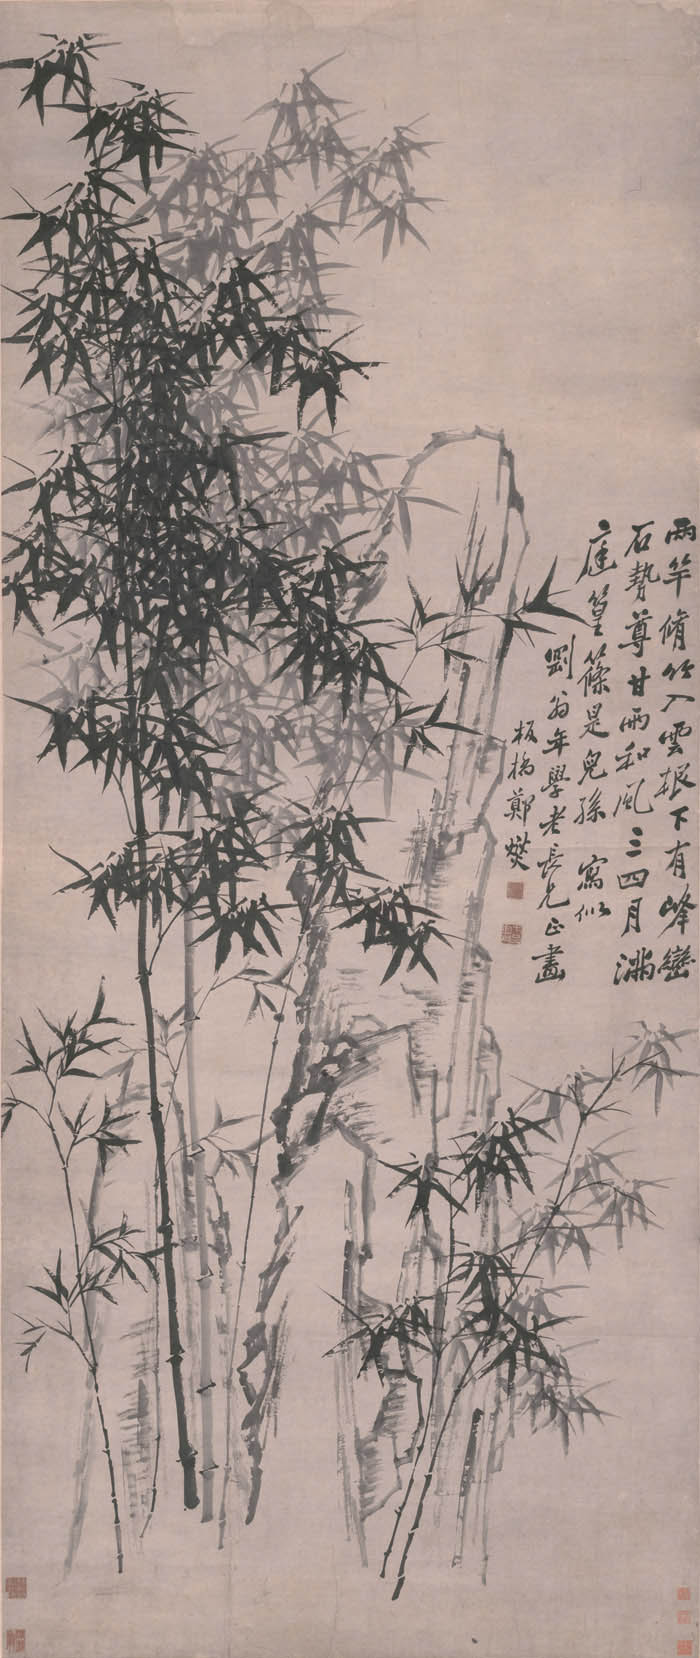 兩竿脩竹入雲根下有峰巒
石勢尊甘雨和風三四月滿
庭篁篠是兒孫 寫似
劉翁年學老長兄正畫
板橋鄭燮